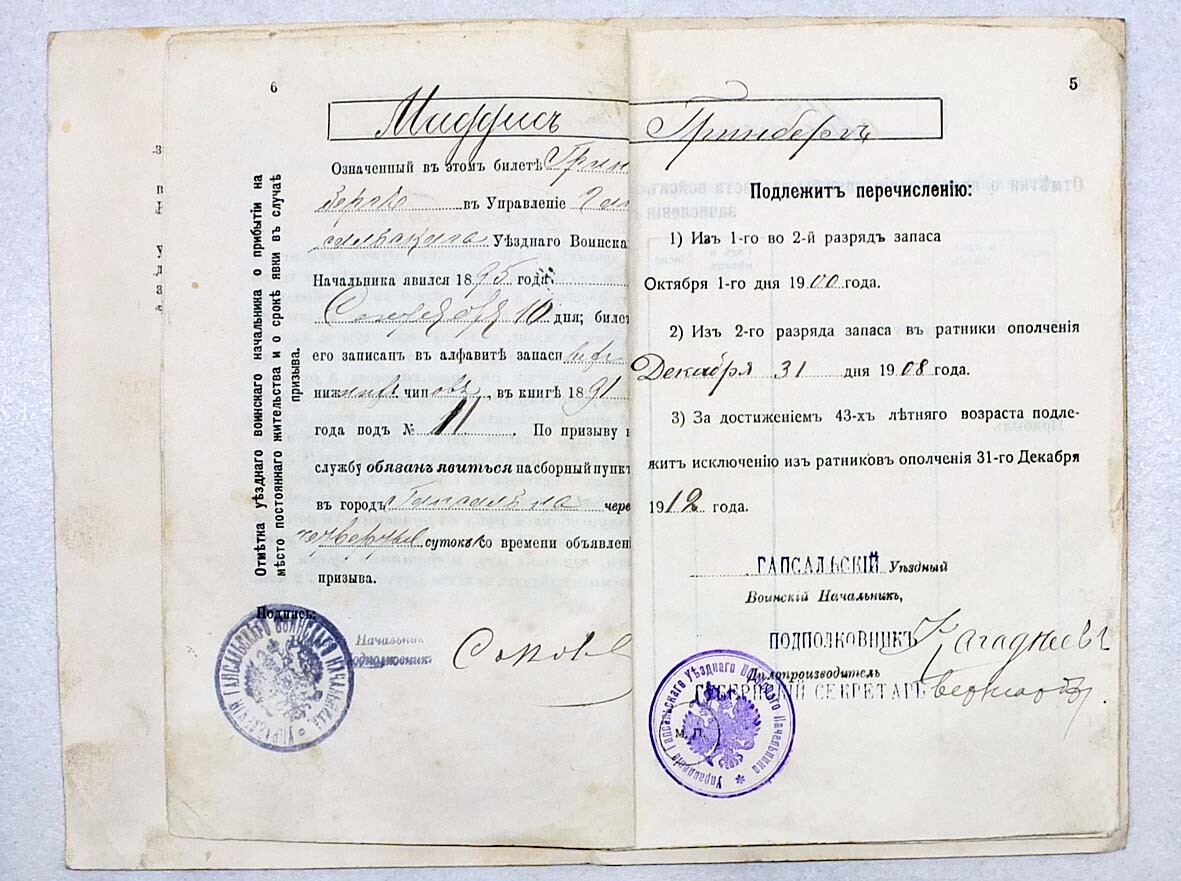 6
Миддисъ
Отмѣтка уѣзднаго воинскаго начальника о прибытіи на
мѣсто постояннаго жительства и о срокѣ явки въ случаѣ
призыва.
Означенный въ этомъ билетѣ Грин
бергъ въ Управленіе Гап
сальскаго Уѣзднаго Воинска
Начальника явился 1895 года
10 дня; билет
его записанъ въ алфавитѣ запасн
нижнихъ чиновъ, въ книгѣ 1891
года подъ № 11. По призыву н
службу обязанъ явиться на сборный пунктъ
въ городъ Гапсаль на чере
сутокъ со времени объявлен
призыва.
Подпись:
Начальник
Подполковникъ
Управленіе Гапсальскаго Воинскаго Начальника
5
Гринбергъ
Подлежитъ перечисленію:
1) Изъ 1-го во 2-й разрядъ запаса
Октября 1-го дня 1900 года.
2) Изъ 2-го разряда запаса въ ратники ополченія
Декабря 31 дня 1908 года.
3) За достиженіемъ 43-хъ лѣтняго возраста подле-
житъ исключенію изъ ратниковъ ополченія 31-го Декабря
1912 года.
ГАПСАЛЬСКІЙ Уѣздный
Воинскій Начальникъ,
ПОДПОЛКОВНИКЪ
Дѣлопроизводитель
ГУБЕРНСКІЙ СЕКРЕТАРЬ
М. П.
Управленіе Гапсальскаго Уѣзднаго Воинскаго Начальника